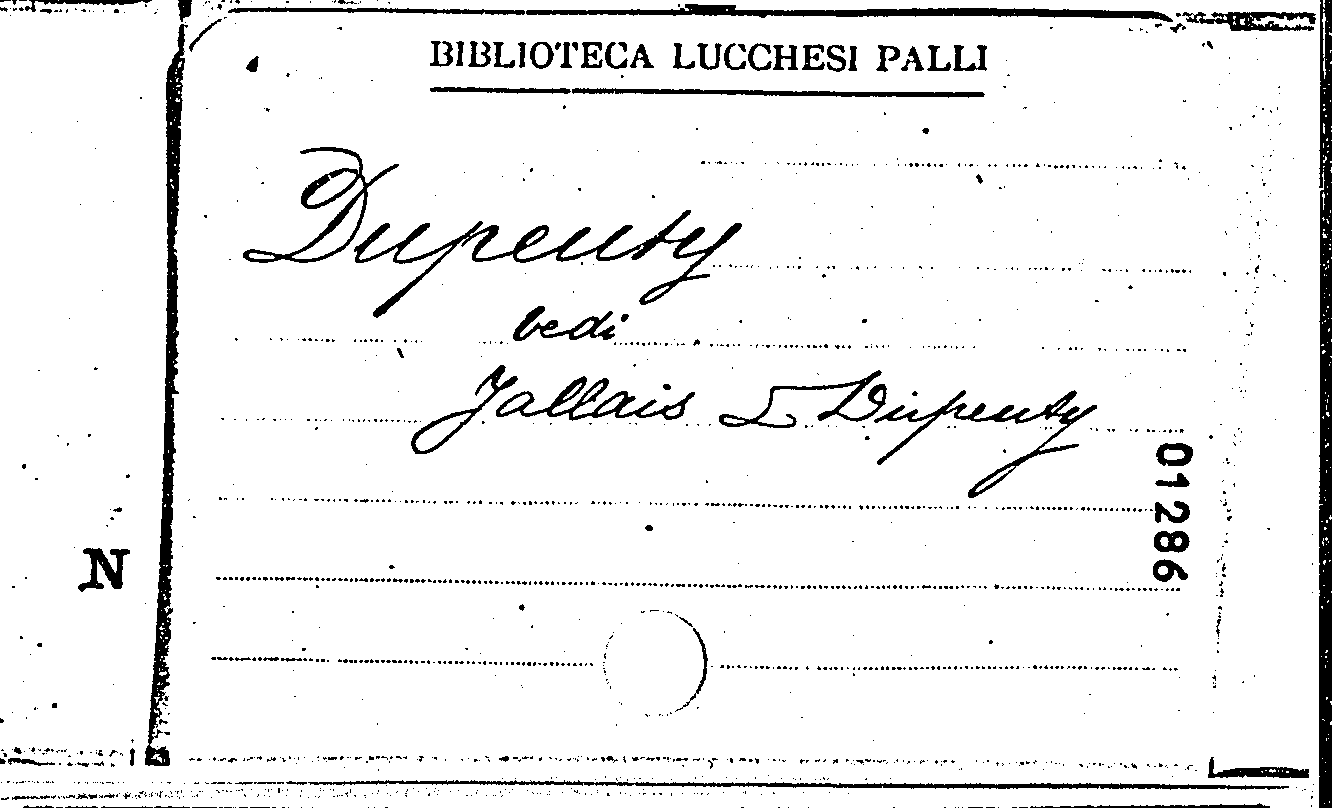 BIBLIOTECA LUCCHESI PALLI
Dupeuty
vedi
Jallais & Dupeuty
01286
N